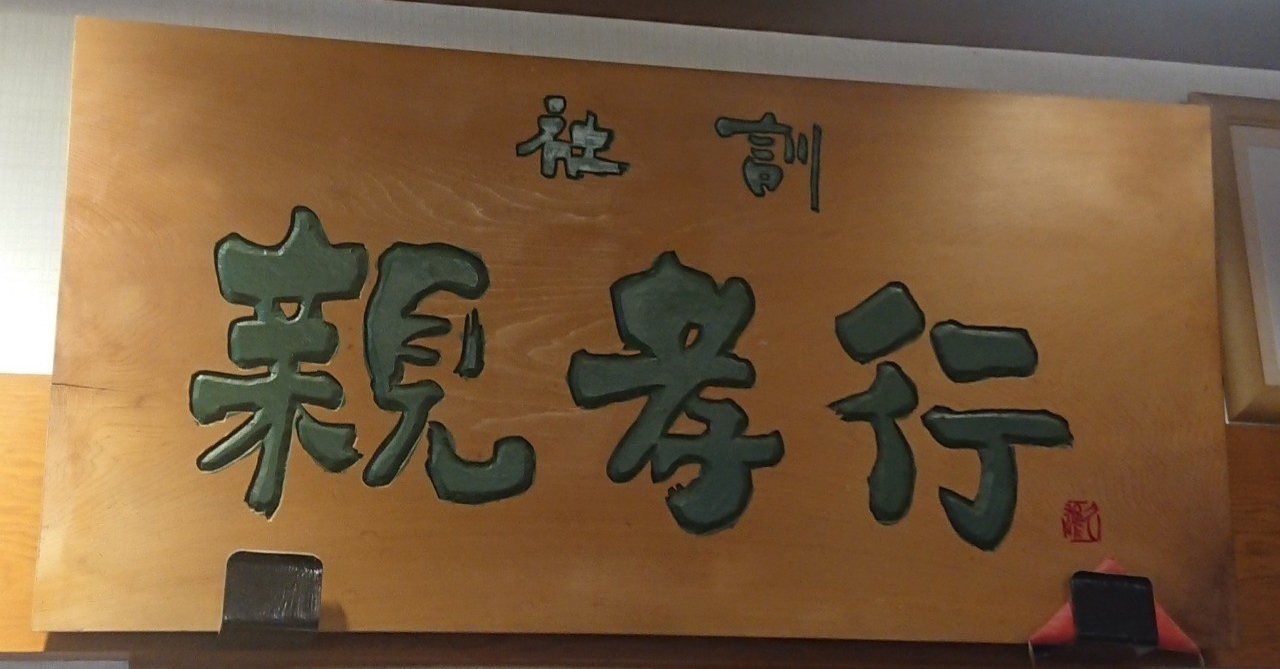 社訓
親孝行